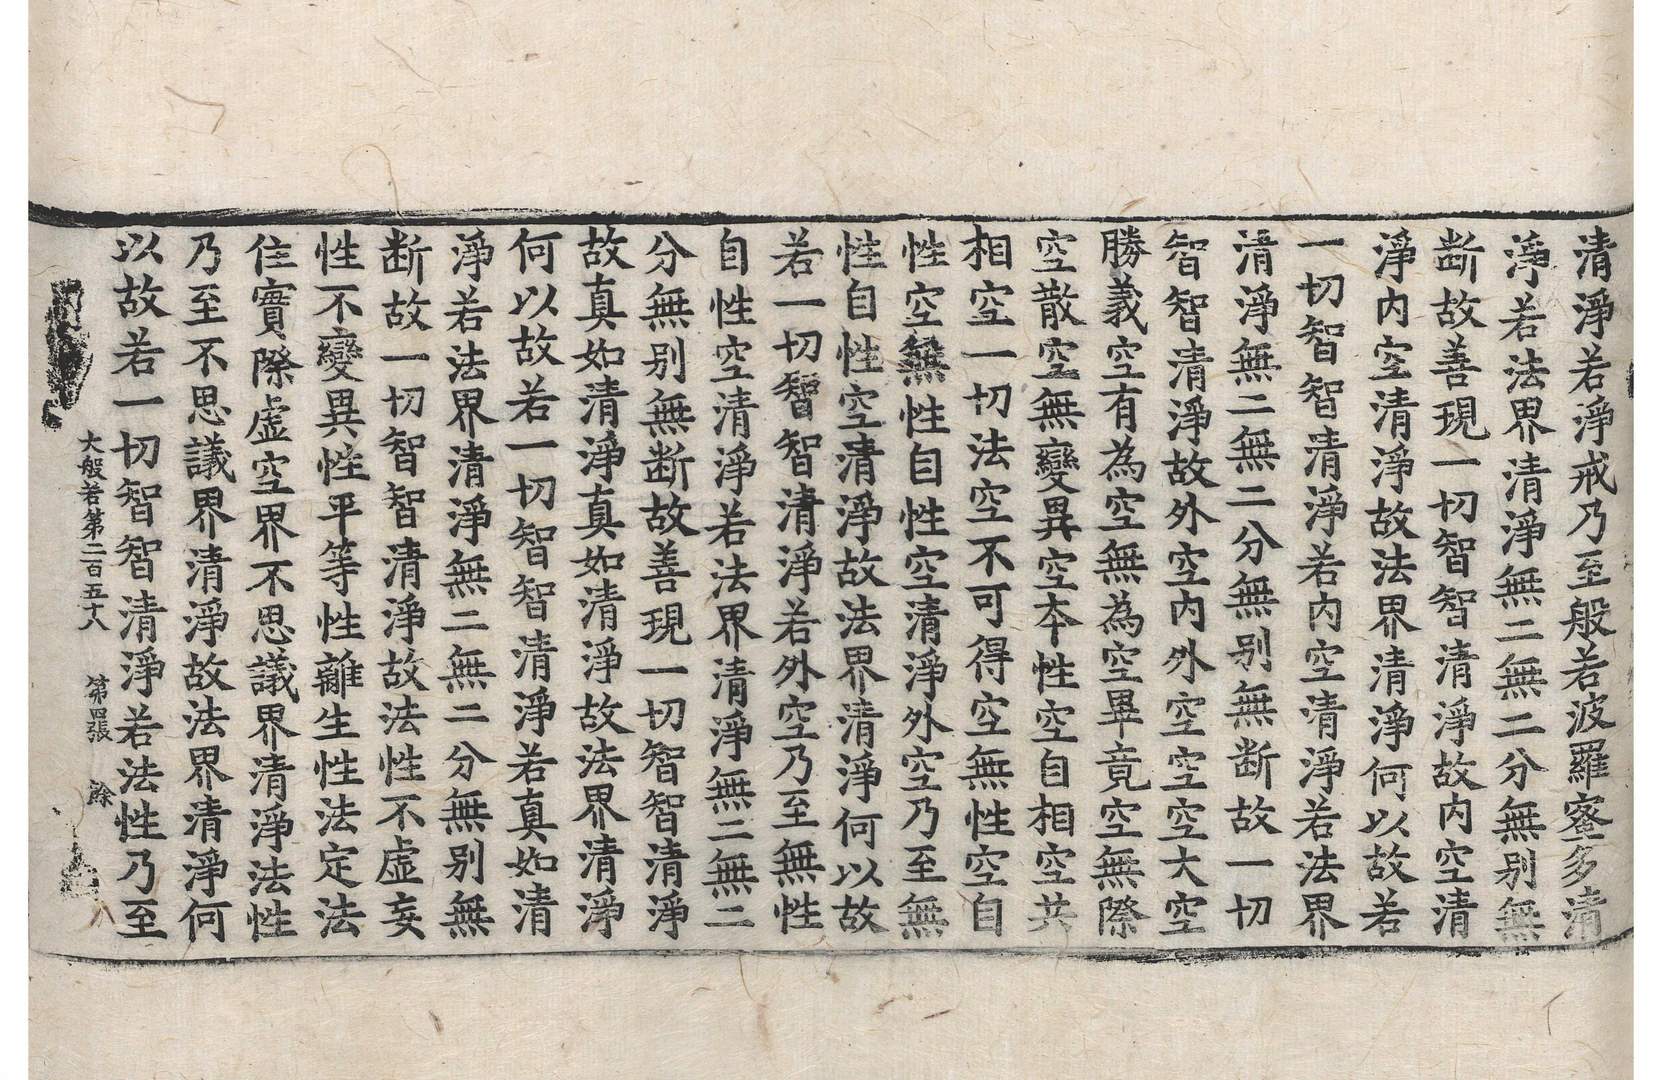 清淨若淨戒乃至般若波羅蜜多清
淨若法界清淨無二無二分無別無
断故善現一切智智清淨故内空清
淨内空清淨故法界清淨何以故若
一切智智清淨若内空清淨若法界
清淨無二無二分無别無断故一切
智智清淨故外空内外空空空大空
勝義空有為空無為空畢竟空無際
空散空無變異空本性空自相空共
相空一切法空不可得空無性空自
性空無性自性空清淨外空乃至無
性自性空清淨故法界清淨何以故
若一切智智清淨若外空乃至無性
自性空清淨若法界清淨無二無二
分無别無断故善現一切智智清淨
故真如清淨真如清淨故法界清淨
何以故若一切智智清淨若真如清
淨若法界清淨無二無二分無别無
断故一切智智清淨故法性不虚妄
性不變異性平等性離生性法定法
住實際虚空界不思議界清淨法性
乃至不思議界清淨故法界清淨何
以故若一切智智清淨若法性乃至
大般若第二百五十八 第四張 餘